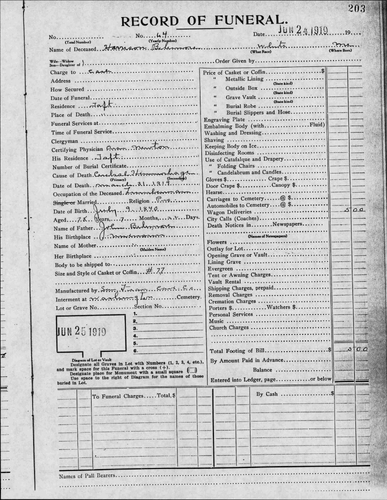 203
RECORD OF FUNERAL.
No. (Total Number) No. 64 (Yearly Number) Date JUN 24 1919 19
Name of Deceased Harrison White (What Race) (Where Born)
Wife - Widow
Son - Daughter of
Order Given by
Charge to
Address
How Secured
Date of Funeral
Residence Taft
Place of Death
Funeral Services at
Time of Funeral Service
Clergyman
Certifying Physician Newton
His Residence Taft
Number of Burial Certificate
Cause of Death Cerebral Hemmorhage
Date of Death March 31, 1919
Occupation of the Deceased Lumberman
Single or Married Religion
Date of Birth July 9, 1840
Aged 78 Years Months Days
Name of Father John
His Birthplace
Name of Mother
Her Birthplace
Body to be shipped to
Size and Style of Casket or Coffin #77
Manufactured by
Interment at Cemetery.
Lot or Grave No. Section No.
JUN 26 1919
1
2
3
4
5
6
Diagram of Lot or Vault
Designate all Graves in Lot with Numbers (1, 2, 3, 4, etc.), and mark space for this Funeral with a cross (+).
Designate place for Monument with a small square
Use space to right of Diagram for the names of those buried in Lot.
Price of Casket or Coffin
" Metallic Lining (State kind)
" Outside Box (State kind)
" Grave Vault (State kind)
" Burial Robe
" Burial Slippers and Hose
Engraving Plate
Embalming Body (with Fluid)
Washing and Dressing
Shaving
Keeping Body on Ice
Disinfecting Rooms
Use of Catafalque and Drapery
" Folding Chairs
" Candelabrum and Candles
Gloves $ Crape $
Door Crape $ Canopy $
Hearse
Carriages to Cemetery @ $
Automobiles to Cemetery @ $
Wagon Deliveries 5 00
City Calls (Coaches)
Death Notices in Newspapers
(Names of Newspapers)
Flowers
Outlay for Lot
Opening Grave or Vault
Lining Grave
Evergreen
Tent or Awning Charges
Vault Rental
Shipping Charges, prepaid
Removal Charges
Cremation Charges
Porters $ Watchers $
Personal Services
Music
Church Charges
Total Footing of Bill 5 00
By Amount Paid in Advance
Balance
Entered into Ledger, page or below
To Funeral Charges, Total $ By Cash $
Names of Pall Bearers